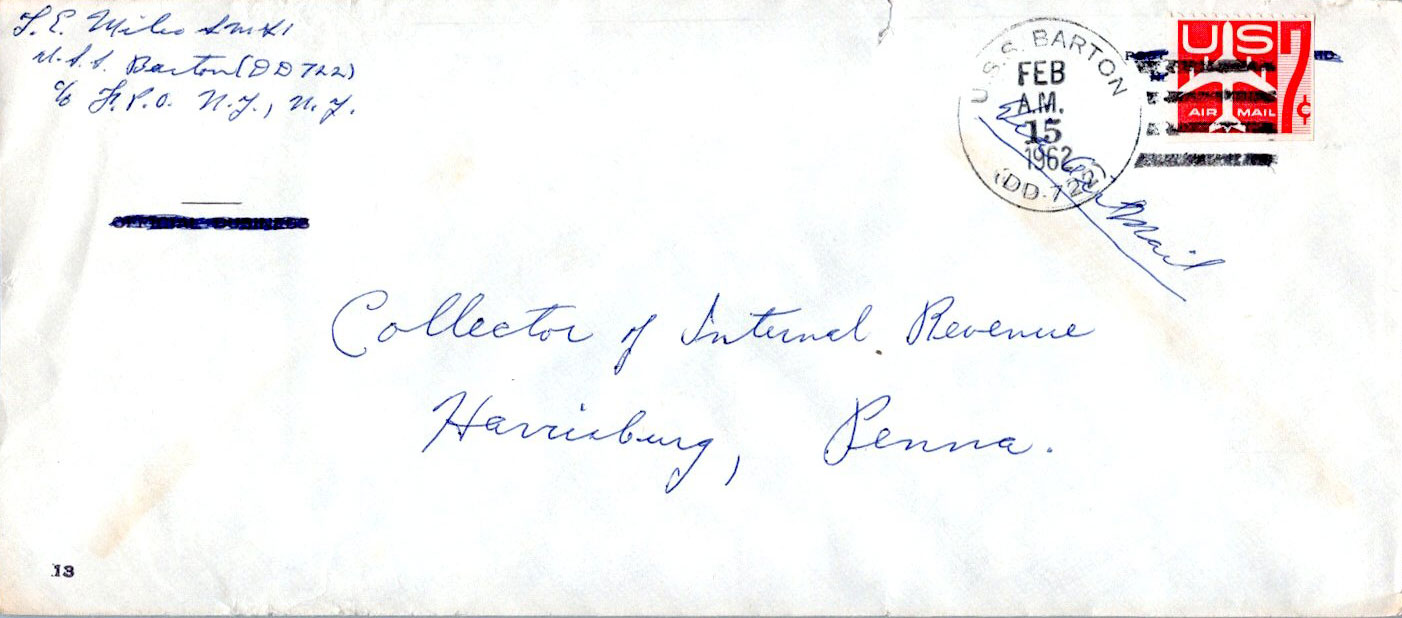 T. E. Miles
U.S.S. Barton (DD 722)
c/o F.P.O. N.Y., N.Y.
U.S.S. BARTON
FEB
A.M.
15
1962
(DD-722)
US 7¢
AIR MAIL
Via Air Mail
OFFICIAL BUSINESS
Collector of Internal Revenue
Harrisburg, Penna.
13